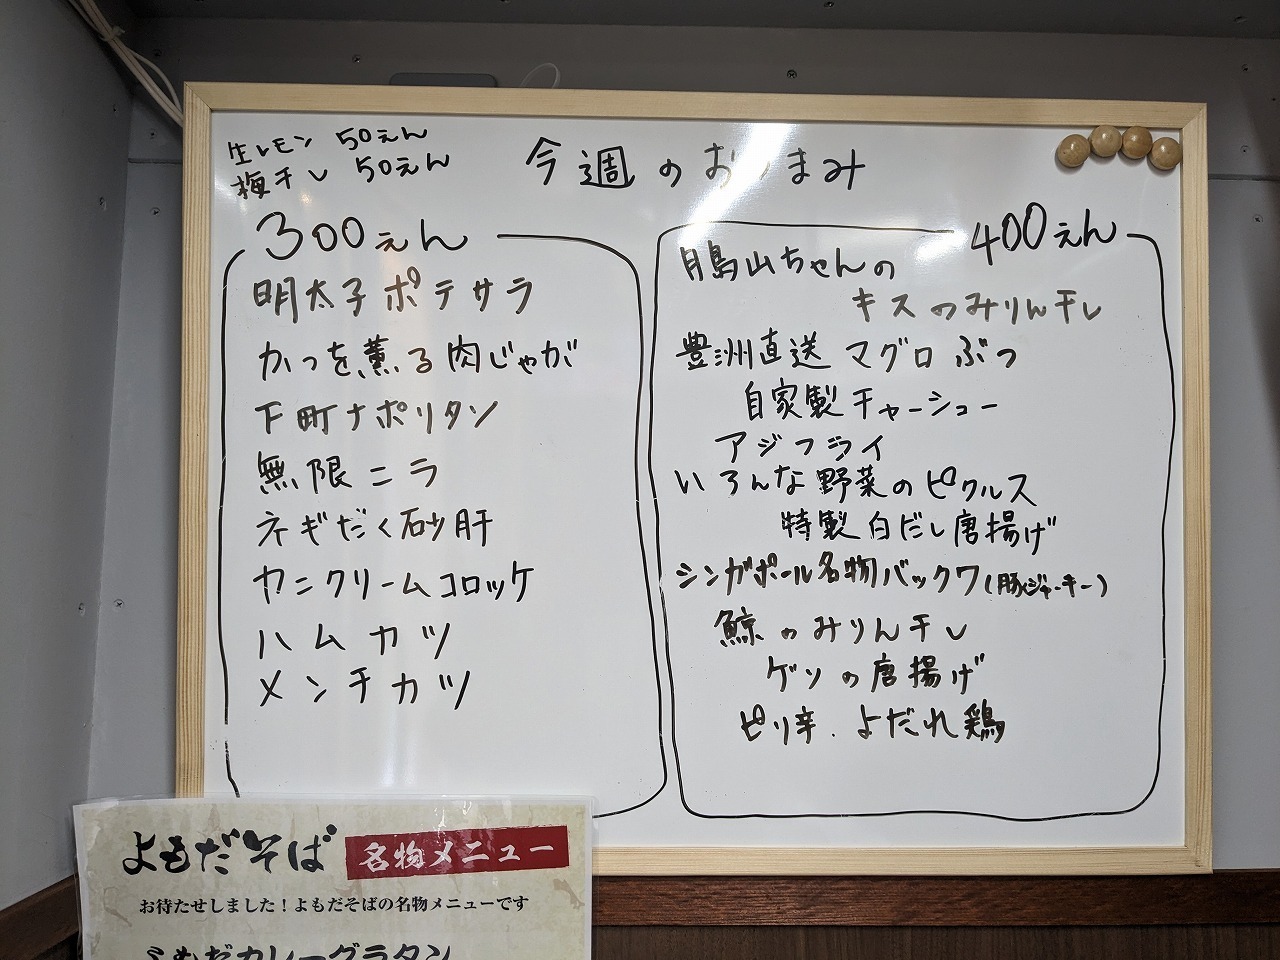 生レモン 50えん
梅干し 50えん
今週のおつまみ
300えん
明太子ポテサラ
かつを薫る肉じゃが
下町ナポリタン
無限ニラ
ネギだく砂肝
カニクリームコロッケ
ハムカツ
メンチカツ
400えん
月島山ちゃんの
キスのみりん干し
豊洲直送マグロぶつ
自家製チャーシュー
アジフライ
いろんな野菜のピクルス
特製白だし唐揚げ
シンガポール名物バックワ(豚ジャーキー)
鯨のみりん干し
ゲソの唐揚げ
ピリ辛.よだれ鶏
よもだそば 名物メニュー
お待たせしました!よもだそばの名物メニューです
よもだカレーグラタン